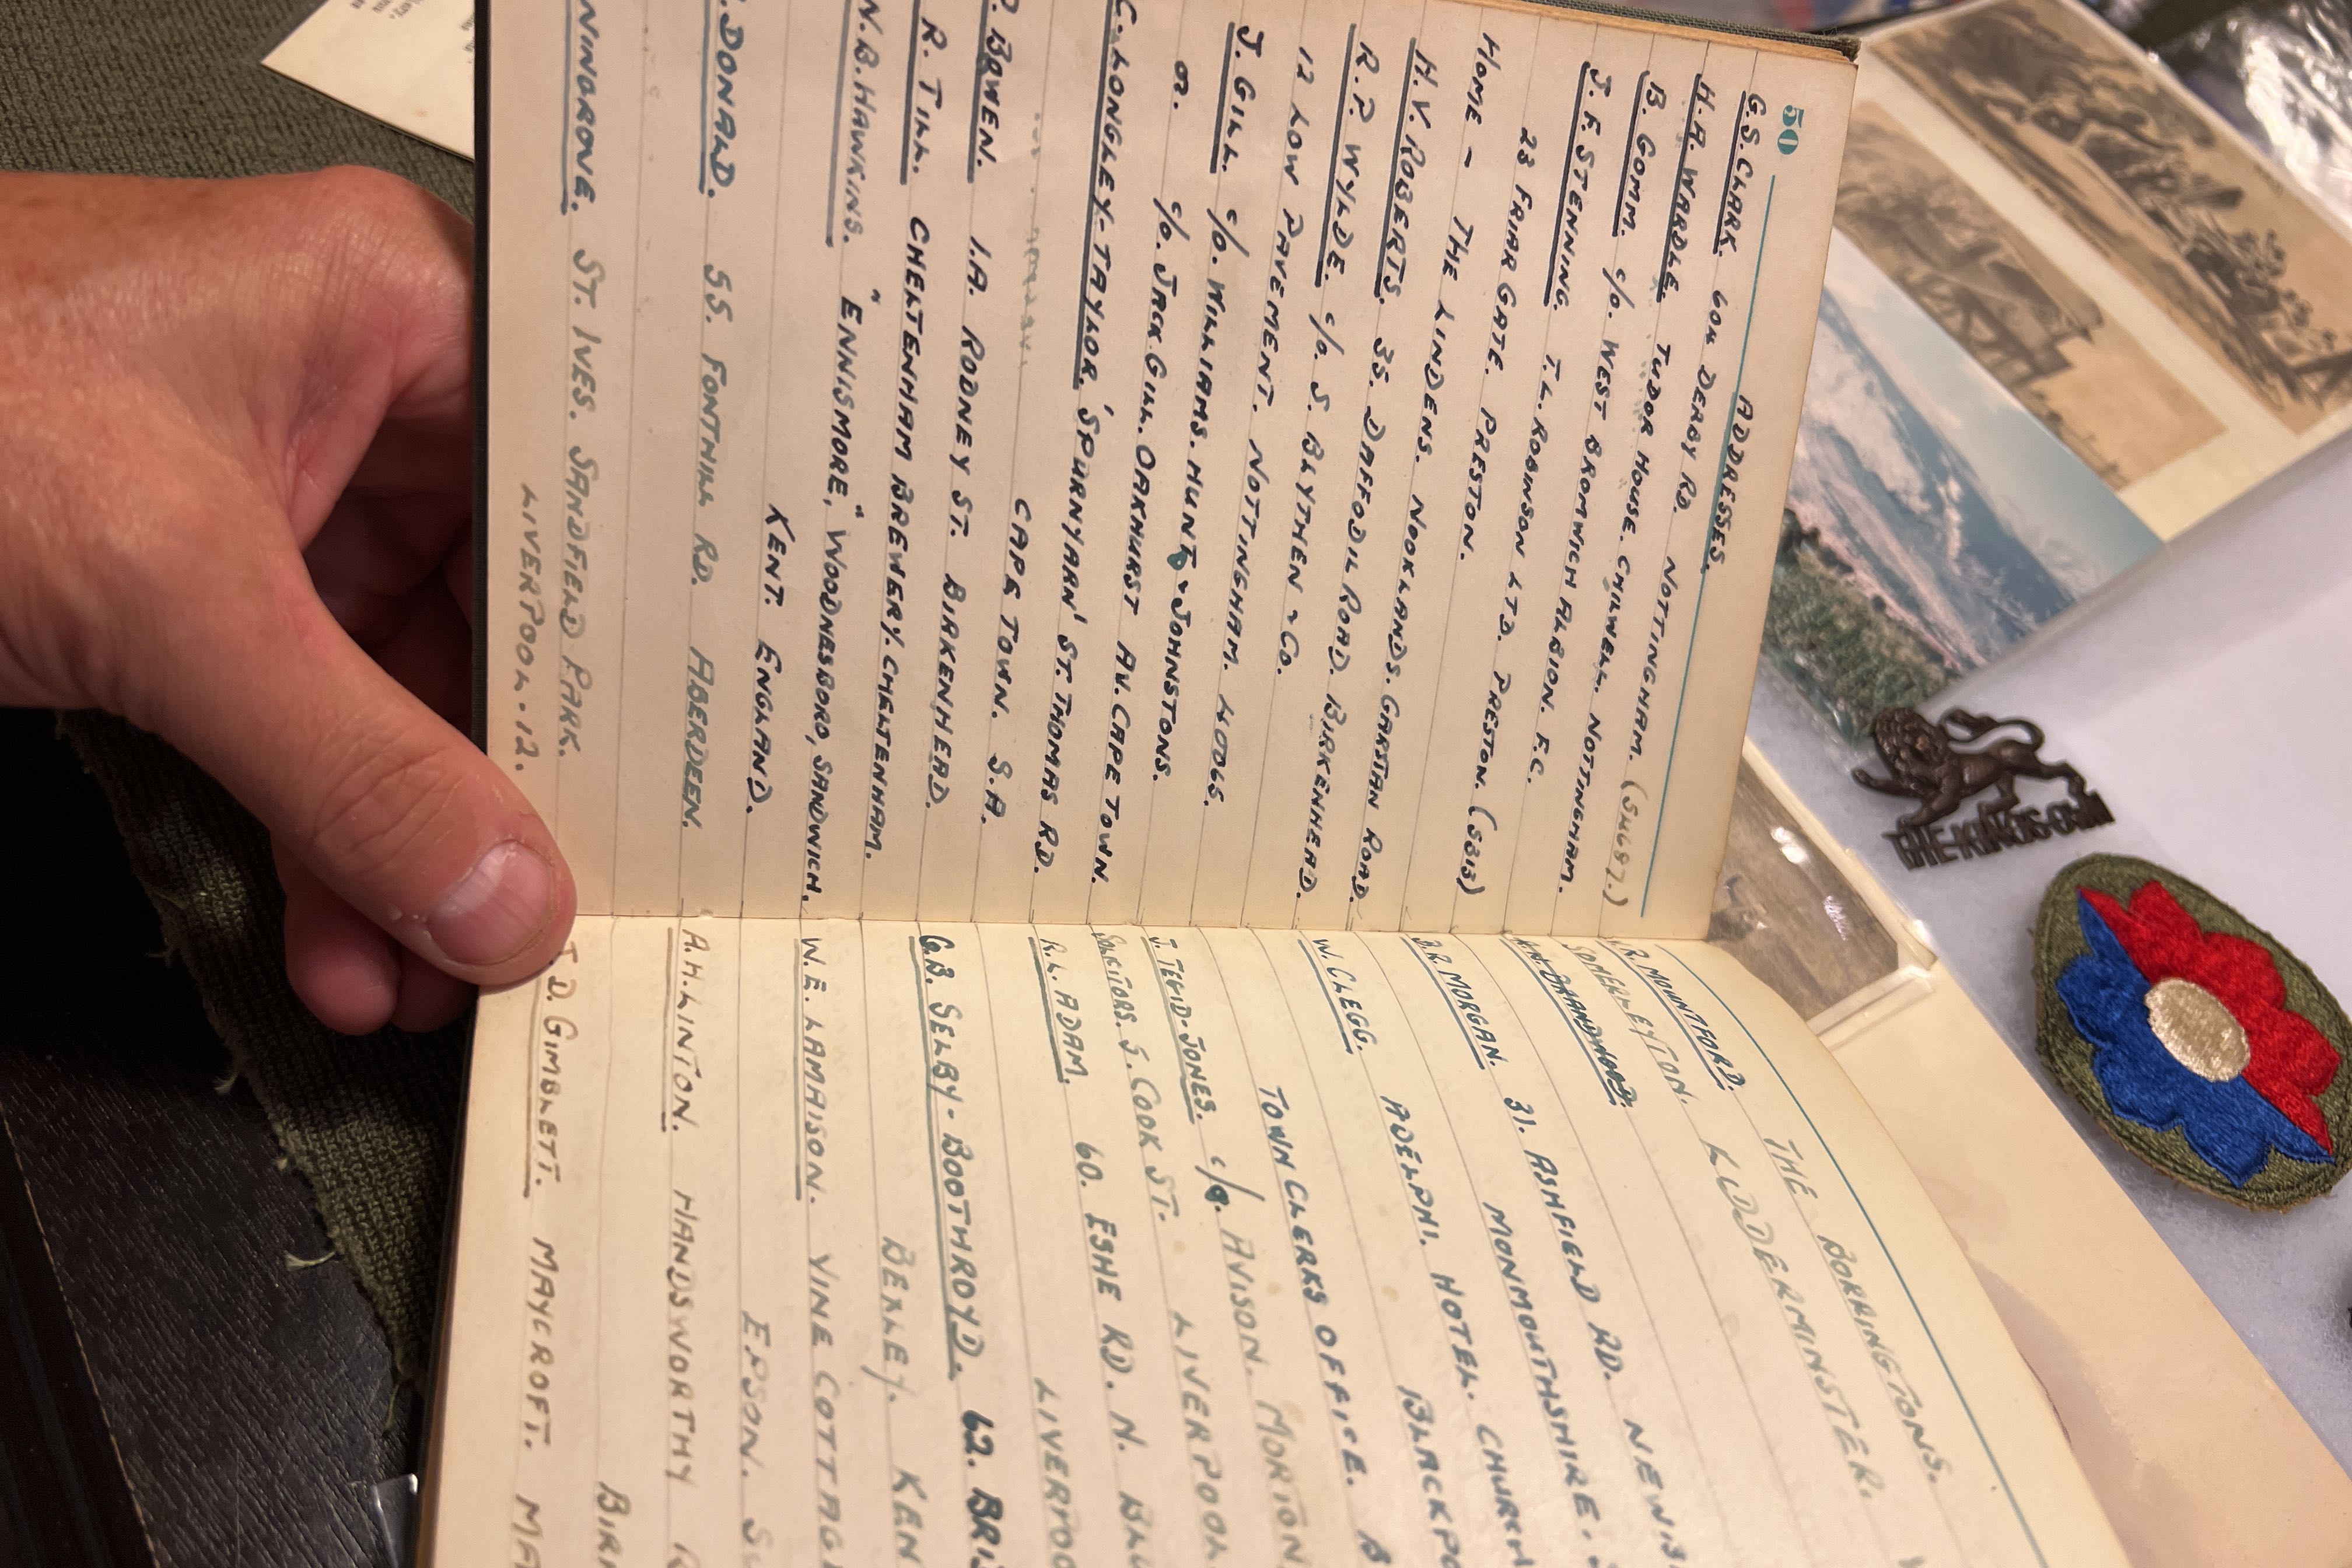 50
ADDRESSES.
G.S. CLARK. 604 DERBY RD. NOTTINGHAM.
H.A. WARDLE. TUDOR HOUSE. CHILWELL. NOTTINGHAM.
B. GOMM. c/o. WEST BROMWICH ALBION. F.C.
J.F. STENNING. T.L. ROBINSON LTD. PRESTON.
23 FRIAR GATE. PRESTON.
HOME - THE LINDENS. NOOKLANDS. GARSTAN ROAD.
H.V. ROBERTS. 35. DAFFODIL ROAD. BIRKENHEAD.
R.P. WYLDE. c/o. S. BLYTHEN & CO.
12 LOW PAVEMENT. NOTTINGHAM.
J. GILL. c/o. WILLIAMS. HUNT & JOHNSTONS.
or. c/o. JACK GILL. OAKHURST AV. CAPE TOWN.
C. LONGLEY-TAYLOR. 'SPURNYARN' ST. THOMAS RD.
CAPE TOWN. S.A.
BOWEN. 1.A. RODNEY ST. BIRKENHEAD.
R. TILL. CHELTENHAM BREWERY. CHELTENHAM.
N.B. HAWKINS. "ENNISMORE," WOODNESBORO, SANDWICH.
KENT. ENGLAND.
DONALD. 55. FONTHILL RD. ABERDEEN.
NINGROVE. ST. IVES. SANDFIELD PARK.
LIVERPOOL. 12.
R. MOUNTFORD. THE BORRINGTONS.
KIDDERMINSTER.
B.R. MORGAN. 31. ASHFIELD RD. NEW
MONMOUTHSHIRE.
W. CLEGG. ADELPHI. HOTEL. CHURCH
BLACKPO
TOWN CLERKS OFFICE. B
J. TEGID-JONES. c/o. AVISON. MORTON
SOLICITORS. 5. COOK ST. LIVERPOOL
R.L. ADAM. 60. ESHE RD. N. BLU
LIVERPOO
G.B. SELBY-BOOTHROYD. 62. BRI
BEXLEY. KEN
W.E. LAMAISON. VINE COTTAG
EPSOM. SU
A.H. LINTON. HANDSWORTHY R
BIRM
J.D. GIMBLETT. MAYCROFT. MA
THE KINGS OWN